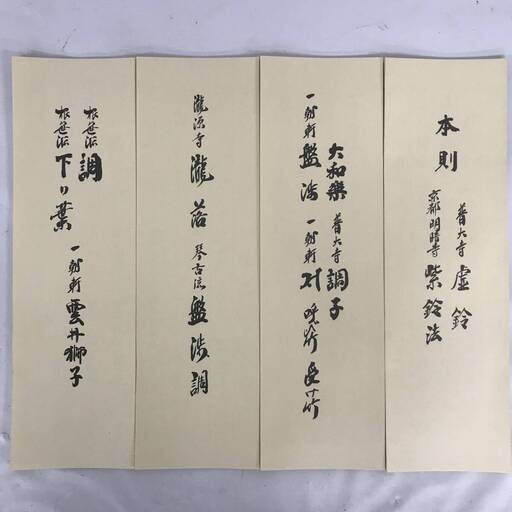 本則
普大寺 虚鈴
京都明暗寺 紫鈴法
大和樂 普大寺 調子
一朝軒 盤渉 一朝軒
虚空 受け竹
瀧源寺 瀧落 琴古流 盤渉調
根笹派 調
根笹派 下り葉 一朝軒 雲井獅子